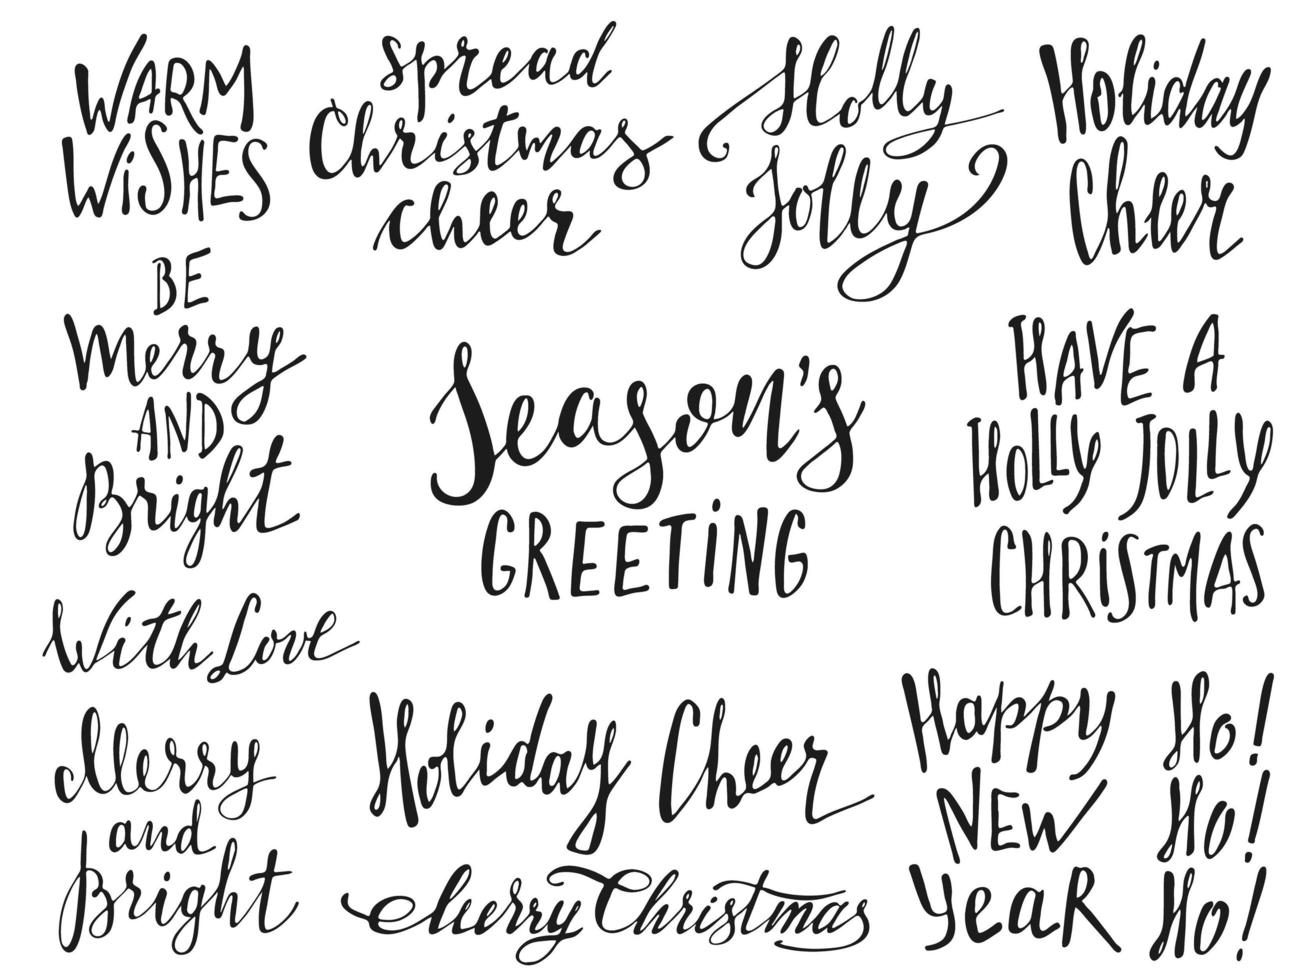 WARM
WiSHES
spread
Christmas
cheer
Holly
Jolly
Holiday
Cheer
BE
Merry
AND
Bright
Season's
GREETiNG
HAVE A
HOLLY JOLLY
CHRiSTMAS
With Love
Merry
and
Bright
Holiday Cheer
Merry Christmas
Happy
NEW
YeaR
Ho!
Ho!
Ho!